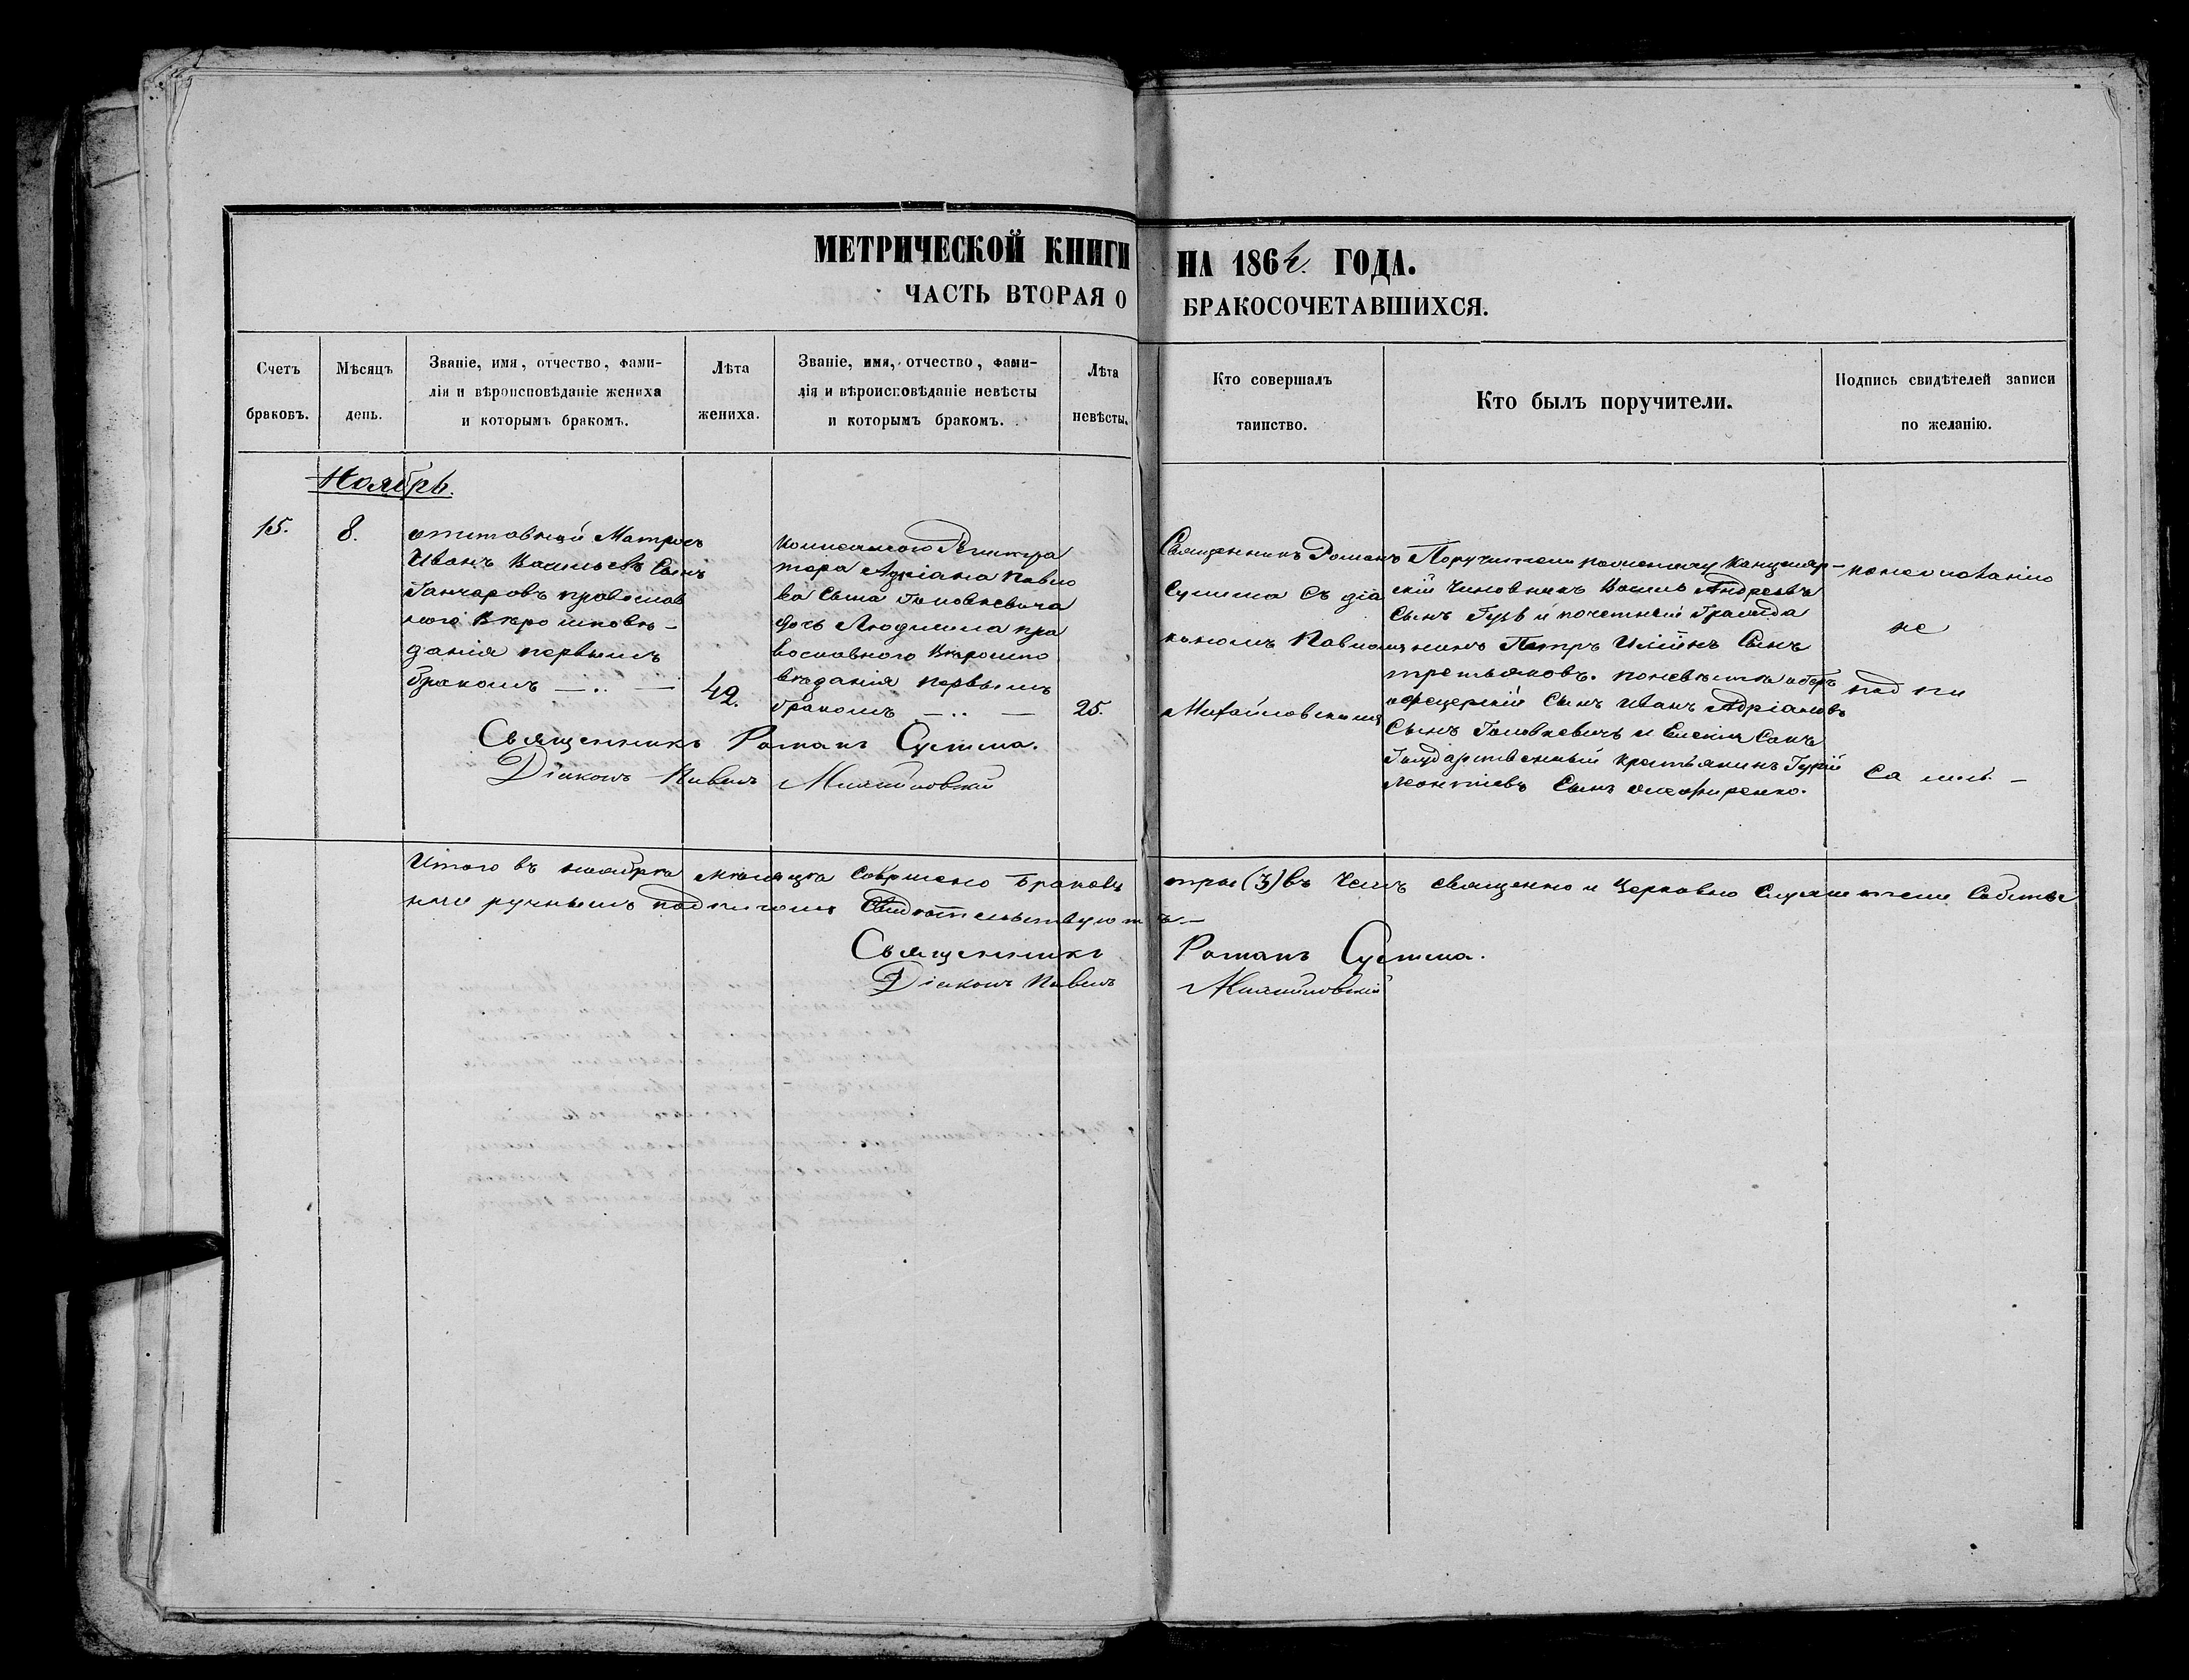 МЕТРИЧЕСКОЙ КНИГИ НА 186 ГОДА.
ЧАСТЬ ВТОРАЯ О БРАКОСОЧЕТАВШИХСЯ.
Счетъ браковъ.
Мѣсяцъ день.
Званіе, имя, отчество, фами-
лія и вѣроисповѣданіе жениха
и которымъ бракомъ.
Лѣта жениха.
Званіе, имя, отчество, фами-
лія и вѣроисповѣданіе невѣсты
и которымъ бракомъ.
Лѣта невѣсты.
Кто совершалъ
таинство.
Кто былъ поручители.
Подпись свидѣтелей записи
по желанію.
Ноябрь.
15.
8.
отставной Матросъ
Иванъ Васильевъ Сынъ
Ганчаровъ православ
ного Вѣро исповѣ-
данія первымъ
бракомъ
42.
Регистра
тора Адріана Павло
ва Сына Головкевича
дочь Людмила пра
вославного Вѣроиспо
вѣданія первымъ
бракомъ
25.
Священникъ Романъ
Сулима Съ діа
кономъ Павломъ
Михайловскимъ
Поручители по жениху Канцеляр-
скій Чиновникъ Василь Андреевъ
Сынъ Гузь и почетный Гражда
нинъ Петръ Ильинъ Сынъ
третьяковъ. по невѣстѣ оберъ
офицерскій Сынъ Иванъ Адріановъ
Сынъ Головкевичъ и
Государственный крестьянинъ Гурій
Леонтіевъ Сынъ
не
под пи
Са лись. -
Священникъ Романъ Сулима.
Діаконъ Павелъ Михайловскій
Итого въ ноябрѣ мѣсяцѣ Совршено браковъ три (3) въ Чемъ священно и Церковно Служители Собств
но ручнымъ подписомъ Свидѣтельствуютъ -
Священникъ Романъ Сулима.
Діаконъ Павелъ Михайловскій